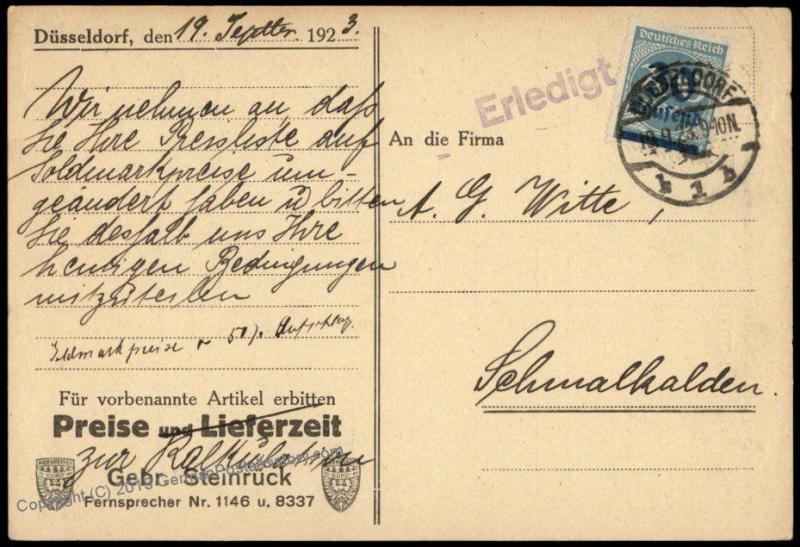 Düsseldorf, den 19. Septbr. 1923.
Wir nehmen an daß
Sie Ihre Preisliste auf
Goldmarkpreise um-
geändert haben u bitten
Sie deshalb uns Ihre
heutigen Bedingungen
mitzuteilen
Goldmarkpreise 50% Aufschlag
Für vorbenannte Artikel erbitten
Preise und Lieferzeit
zur Kalkulation
Gebr. Steinrück
Fernsprecher Nr. 1146 u. 8337
Erledigt
Deutsches Reich
DÜSSELDORF
9-10N.
1
An die Firma
A. G. Witte,
Schmalkalden.